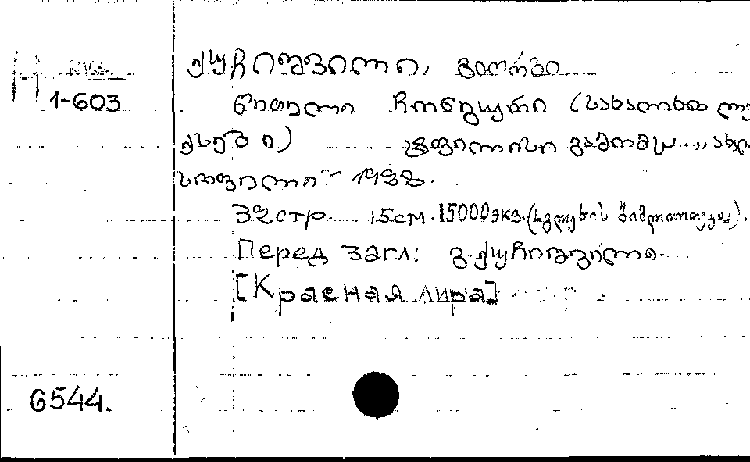 H
1-603
ქუჩიშვილი, გიორგი
წითელი ჩონგური (სახალხო ლე
ქსები) თბილისი გამომც. „ახლ
სოფელი" 1933.
32стр. 15см. 15000экз. (სგლეხის ბიბლიოთეკა).
Перед загл: გ. ქუჩიშვილი
[Красная лира]
6544.